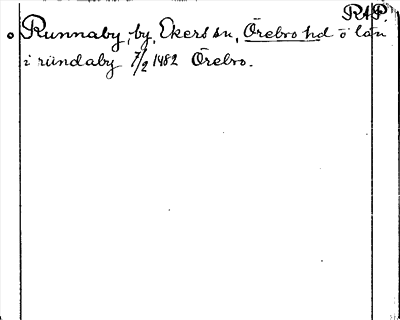 RAP.
Runnaby, by, Ekers sn, Örebro hd ö län
i rúndaby 7/2 1482 Örebro.